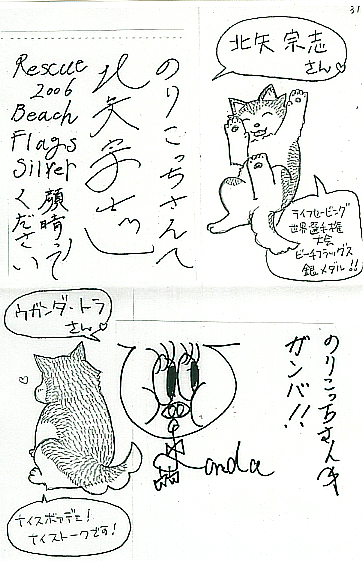 31
北矢 宗志
さん♡
のりこっちさんへ
北矢宗志
Rescue
2006
Beach
Flags
Silver
顔晴って
ください
ライフセービング
世界選手権
大会
ビーチフラッグス
銀メダル!!
ウガンダ・トラ
さん
のりこっちさんへ
ガンバ!!
ナイストークです!